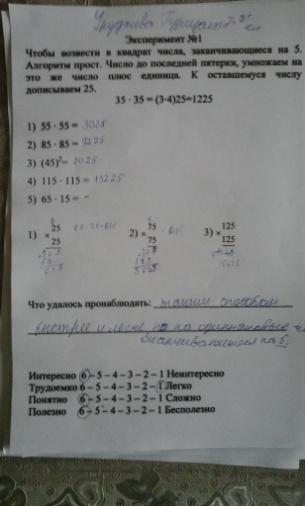 Эксперимент №1
Чтобы возвести в квадрат числа, заканчивающиеся на 5.
Алгоритм прост. Число до последней пятерки, умножаем на
это же число плюс единица. К оставшемуся числу
дописываем 25.
35 · 35 = (3·4)25=1225
1) 55 · 55 = 3025
2) 85 · 85 = 7225
3) (45)²= 2025
4) 115 · 115 = 13225
5) 65 · 15 = -
1) × 25 2) × 75 3) × 125
25 75 125
Что удалось пронаблюдать: таким способом
быстрее и легче
на 5.
Интересно 6 – 5 – 4 – 3 – 2 – 1 Неинтересно
Трудоемко 6 – 5 – 4 – 3 – 2 – 1 Легко
Понятно 6 – 5 – 4 – 3 – 2 – 1 Сложно
Полезно 6 – 5 – 4 – 3 – 2 – 1 Бесполезно